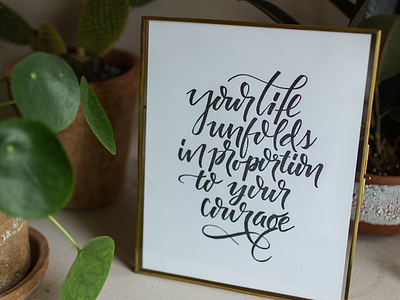 your life
unfolds
in proportion
to your
courage